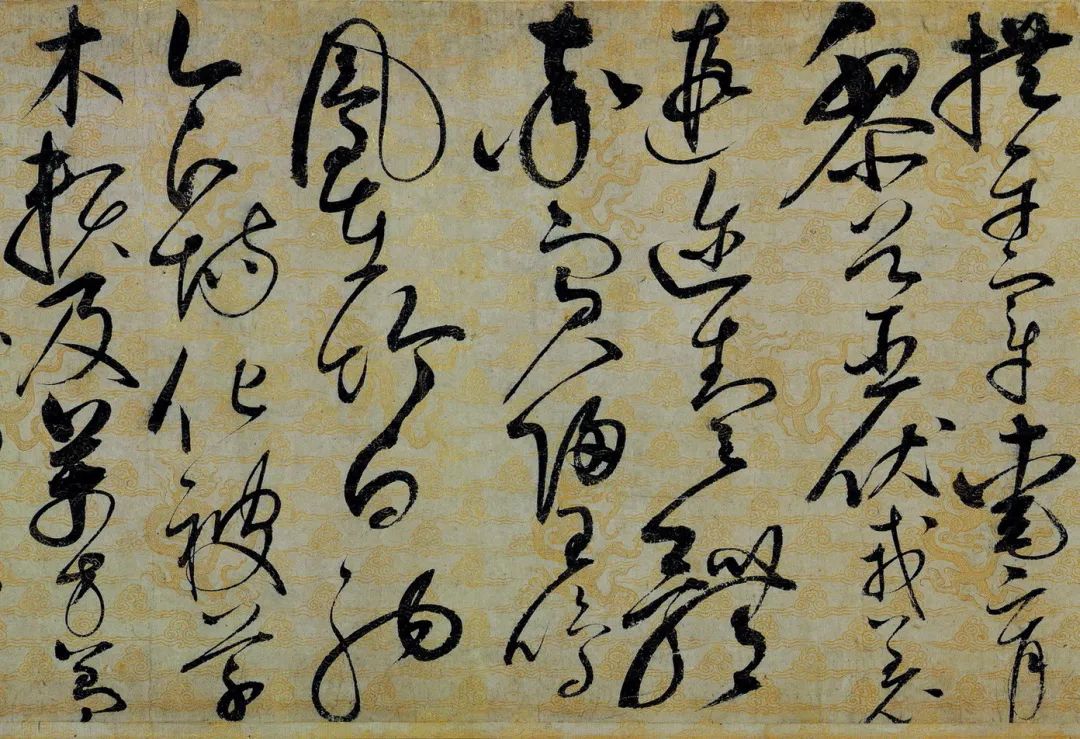 拱平章愛育
黎首臣伏戎羌
遐邇壹體
率賓歸王鳴
鳳在竹白駒
食場化被草
木賴及萬方蓋